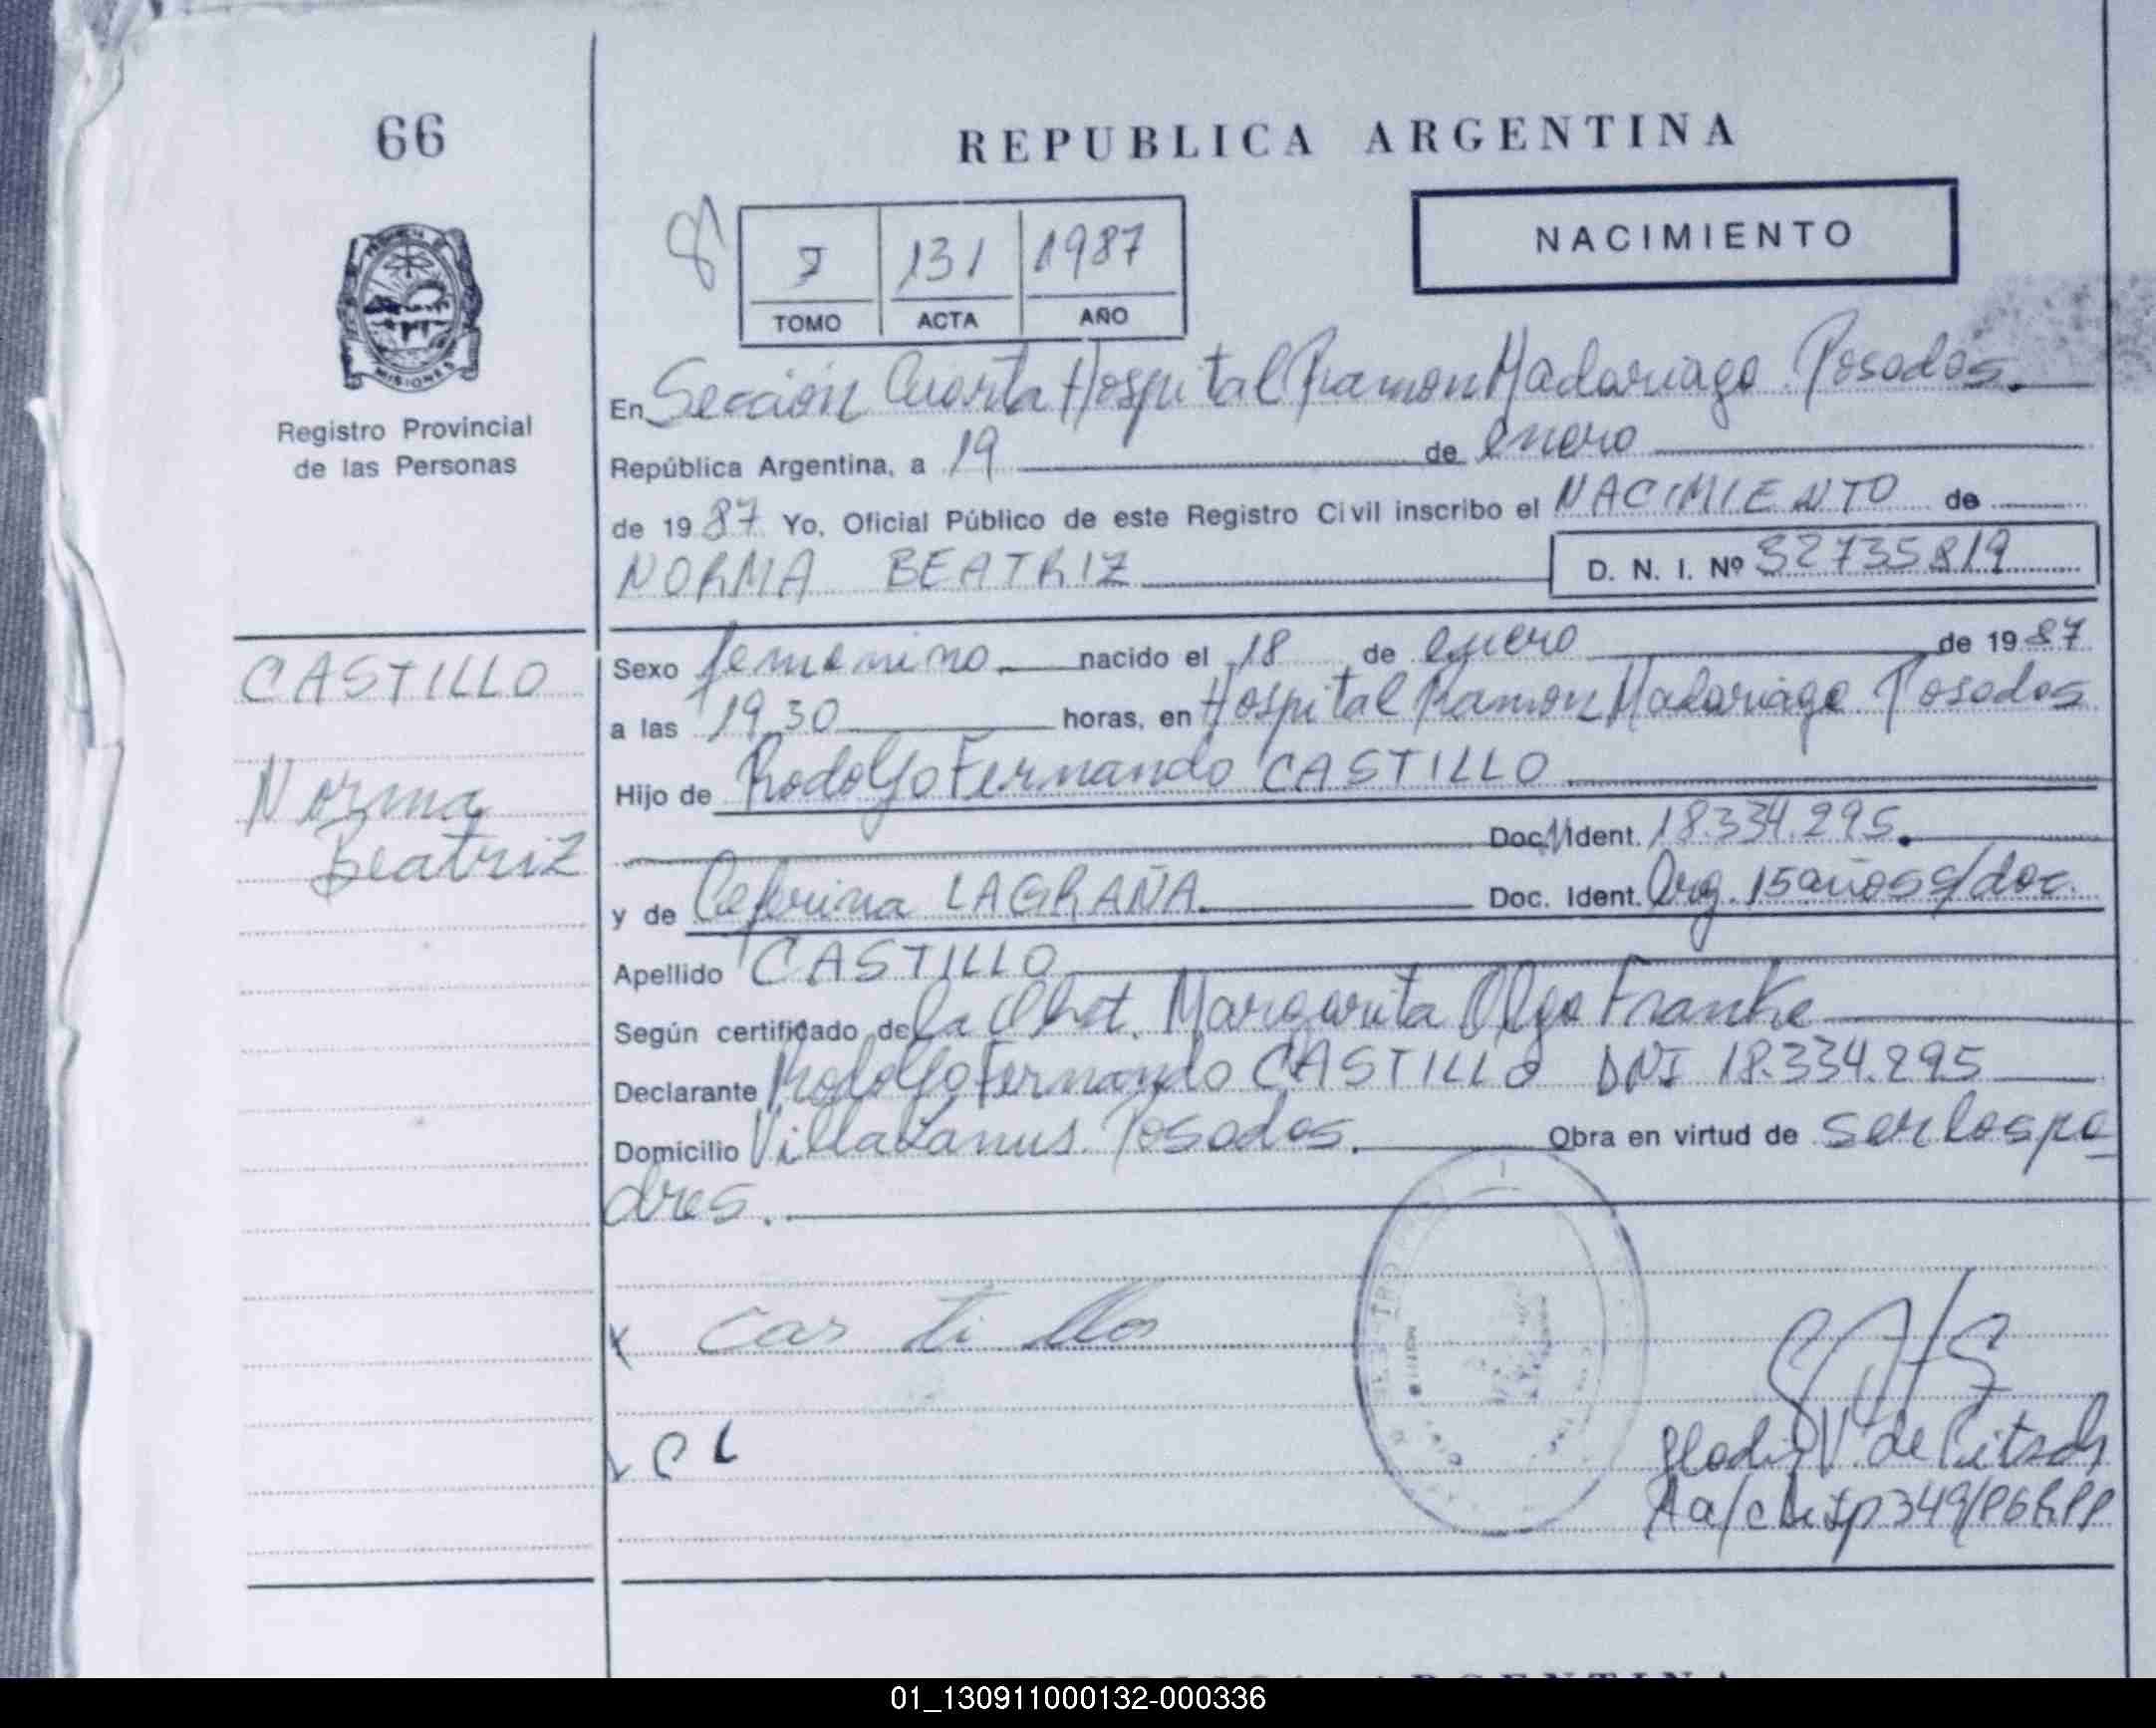 66
REPUBLICA ARGENTINA
NACIMIENTO
8
I 131 1987
TOMO ACTA AÑO
MISIONES
Registro Provincial
de las Personas
En Sección Cuarta Hospital Ramon Madariaga Posadas.
República Argentina, a 19 de enero
de 1987 Yo, Oficial Público de este Registro Civil inscribo el NACIMIENTO de
NORMA BEATRIZ D. N. I. Nº 32735819
CASTILLO
Norma
Beatriz
Sexo femenino nacido el 18 de enero de 1987
a las 19,30 horas, en Hospital Ramon Madariaga Posadas
Hijo de Rodolfo Fernando CASTILLO
Doc. Ident. 18.334.295.
y de Ceferina LAGRAÑA. Doc. Ident. Arg. 15 años s/doc.
Apellido CASTILLO
Según certificado de la Obst. Margarita Olga Franke
Declarante Rodolfo Fernando CASTILLO DNI 18.334.295
Domicilio Villa Lanus. Posadas. Obra en virtud de ser los pa
dres.
x Castillo
x C L
V. de
REPUBLICA ARGENTINA
01_130911000132-000336